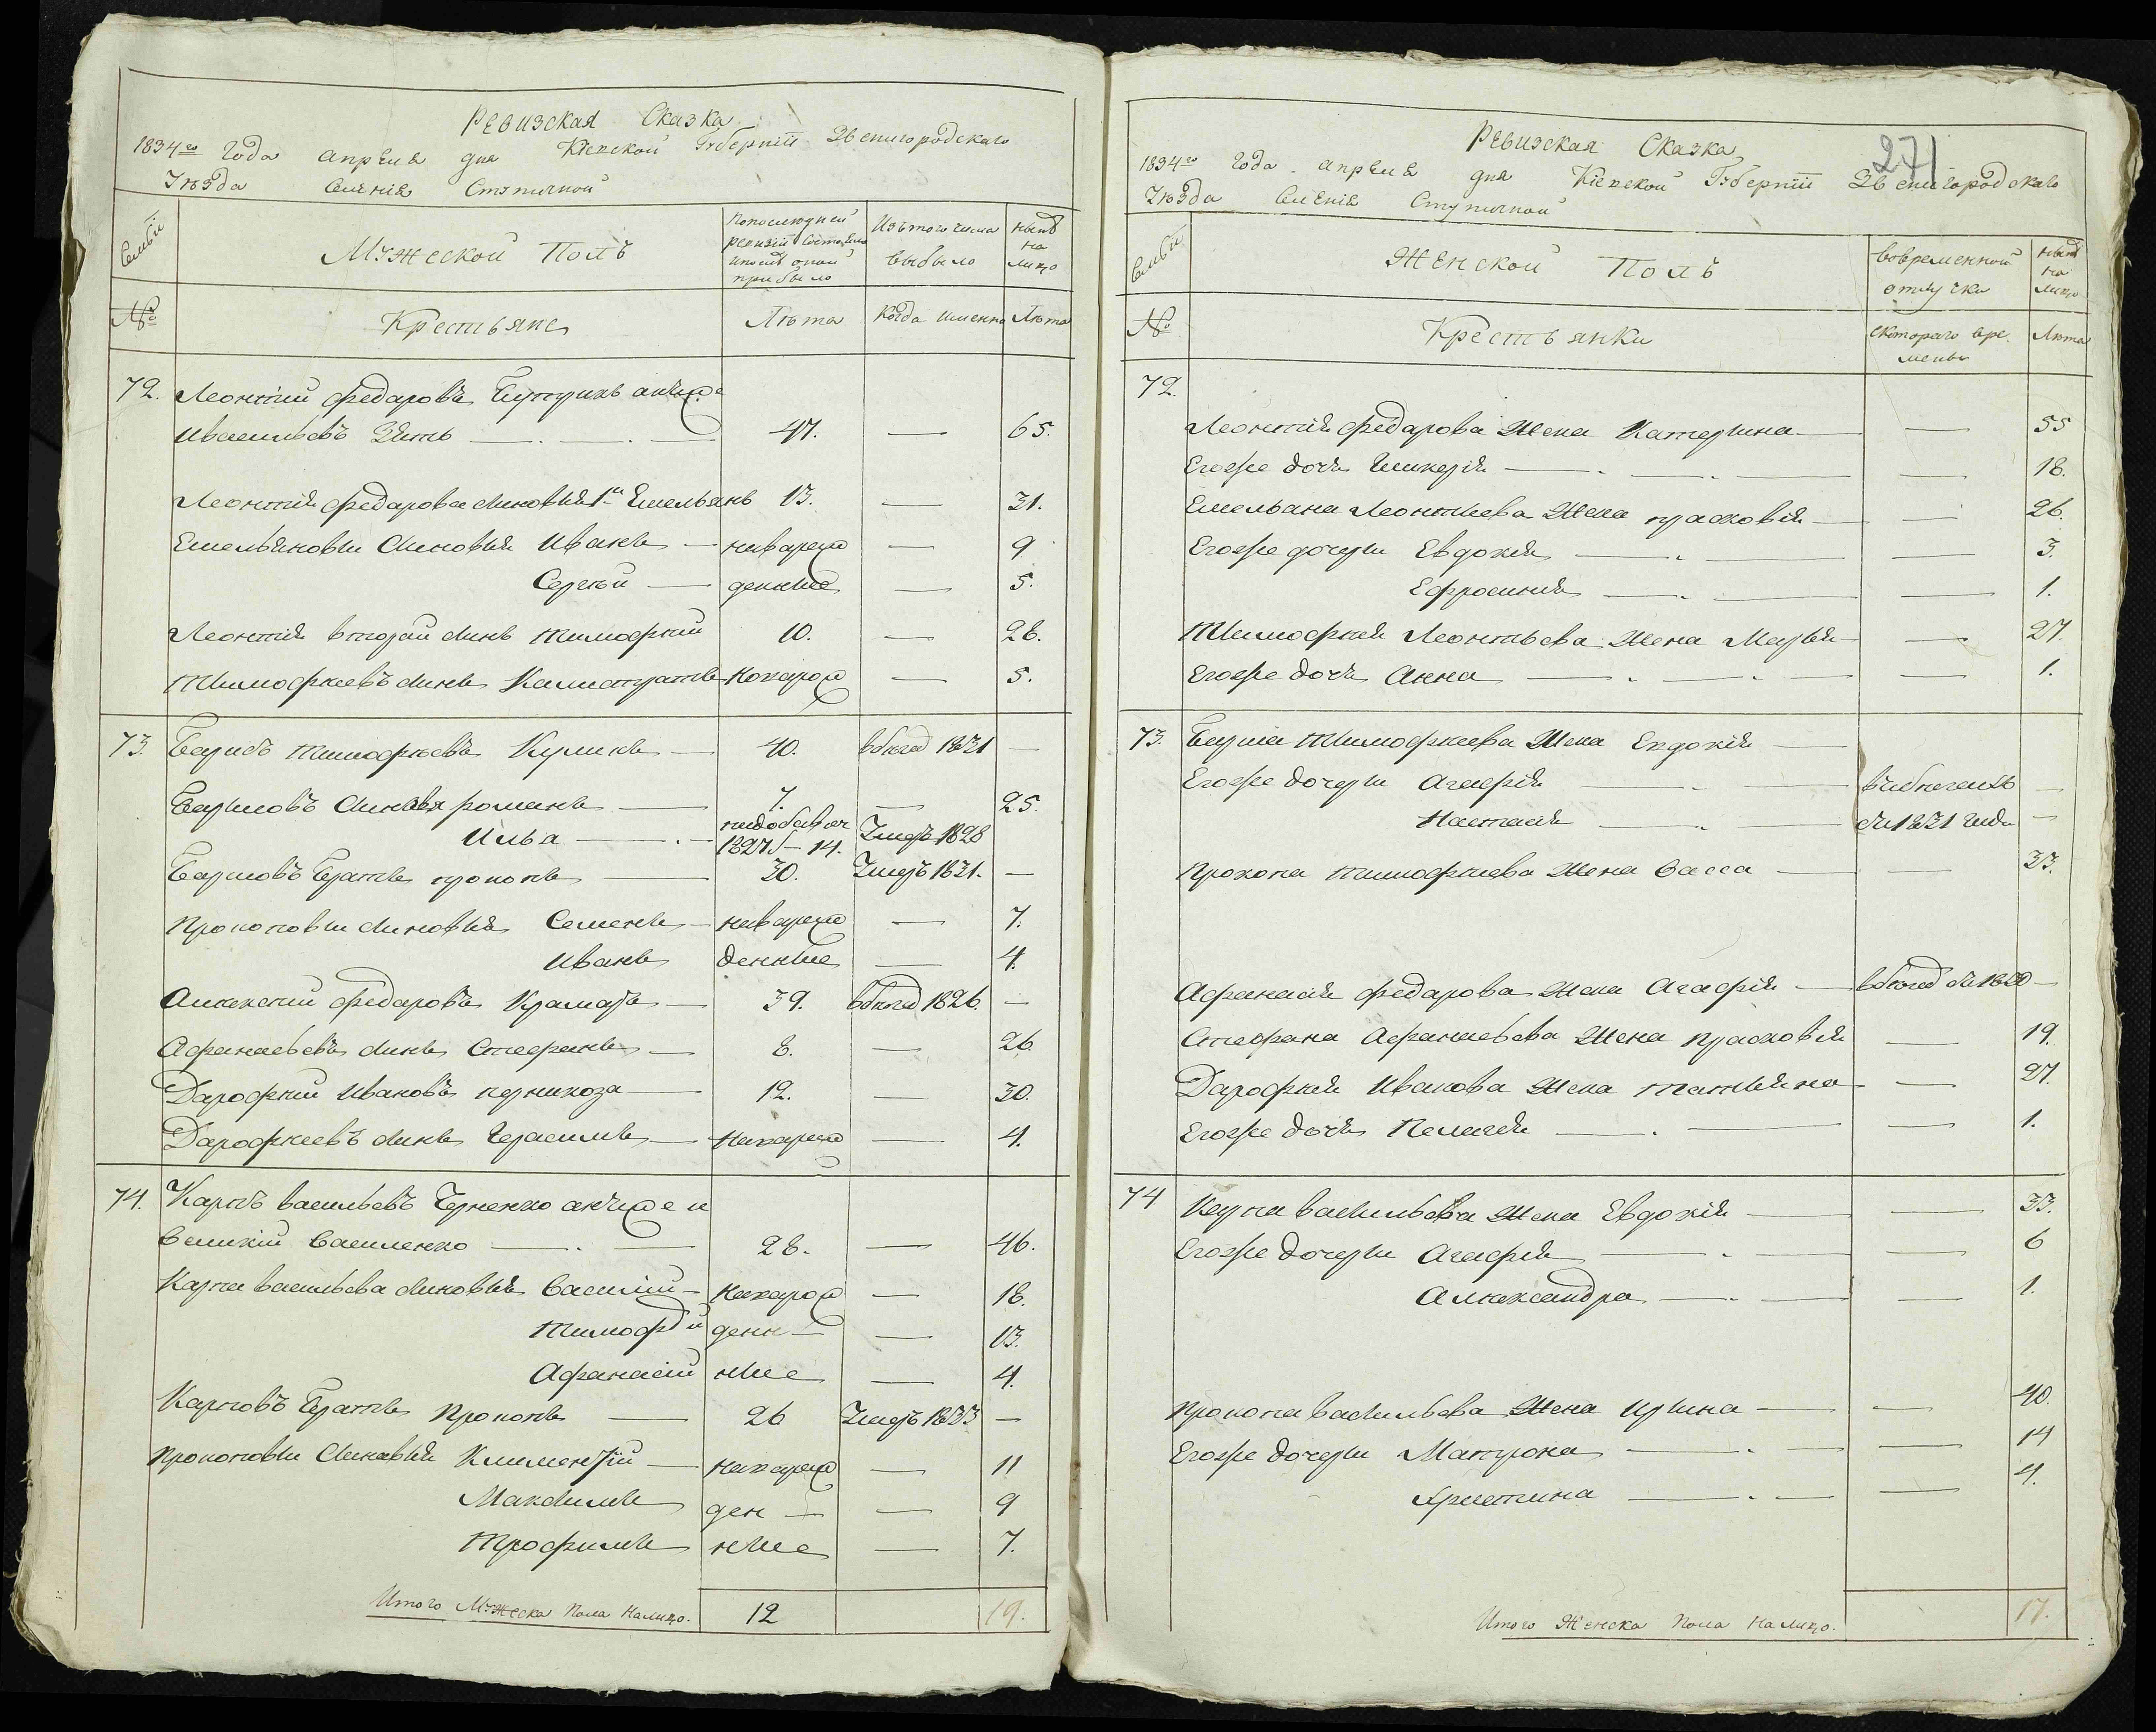 Ревизская Сказка
1834го Года Апреля дня Кіевской Губерніи Звенигородского
Уѣзда Селенія Ступичной
Семьи
Мужеской Полъ
По последней ревизіи состояло и после оной прибыло
Изъ того числа выбыло
Ныне на лицо
№
Крестьяне
Лѣта
Когда именно
Лѣта
72. Леонтій Федаровъ
Зять — 47. — 65.
Леонтія Федарова синовья 1й Емельянъ 13. — 31.
Емельяновы Синовья Иванъ — новарож — 9
Сергѣй — денные — 5.
Леонтія вторай синъ Тимофѣй 10. — 28.
Тимофѣевъ синъ Калистратъ Новарож — 5.
73. Тимофѣевъ Куликъ — 40. в бѣгах 1831 —
Синовья Романъ — 7. — 25.
Илья — 1827 — 14. Умеръ 1828
Братъ Прокопъ — 30. Умеръ 1831. —
Прокоповы синовья Семенъ — новарож — 7.
Иванъ денные — 4.
Федаровъ Крамаръ — 39. в бѣгах 1826. —
Афанасьевъ синъ Стефанъ — 8. — 26
Дарофѣй Ивановъ Перникоза — 12. — 30.
Дарофѣевъ синъ Герасимъ — Новарож — 4.
74. Карпъ Васильевъ Черненко
Василенко — 28. — 46.
Карпа Васильева синовья Василій — Новарож — 18.
Тимофѣй денн — — 13.
Афанасій ные — 4.
Карповъ Братъ Прокопъ — 26 Умеръ 1833 —
Прокоповы Синавья Климентій — Новарож — 11
Максимъ ден — — 9
Трофимъ ные — 7.
Итого Мужеска пола налицо. 12 19.
271
Ревизская Сказка
1834го Года Апреля дня Кіевской Губерніи Звенигородского
Уѣзда Селенія Ступичной
Семьи
Женской Полъ
Во временной отлучке
Ныне на лицо
№
Крестьянки
С котораго времены
Лѣта
72.
Леонтія Федарова Жена Катерина — — 55
Егоже дочь Гликерія — — 18.
Емельяна Леонтьева Жена Прасковія — — 26.
Егоже дочери Евдокія — — 3.
Ефросинія — — 1.
Тимофѣя Леонтьева Жена Марья — — 27.
Егоже дочь Анна — — 1.
73. Тимофѣева Жена Евдокія —
Егоже дочери Агафія — —
Настасія — 1831 года —
Прокопа Тимофѣева Жена Васса — — 33.
Афанасія Федарова Жена Агафія — —
Стефана Афанасьева Жена Прасковія — 19.
Дарофѣя Иванова Жена Татьяна — — 27.
Егоже дочь Пелагея — — 1.
74 Карпа Васильева Жена Евдокія — — 33.
Егоже дочери Агафія — — 6
Александра — — 1.
Прокопа Васильева Жена Ирина — — 40.
Егоже дочери Матрона — — 14
Христина — — 4.
Итого Женска пола налицо. 17.